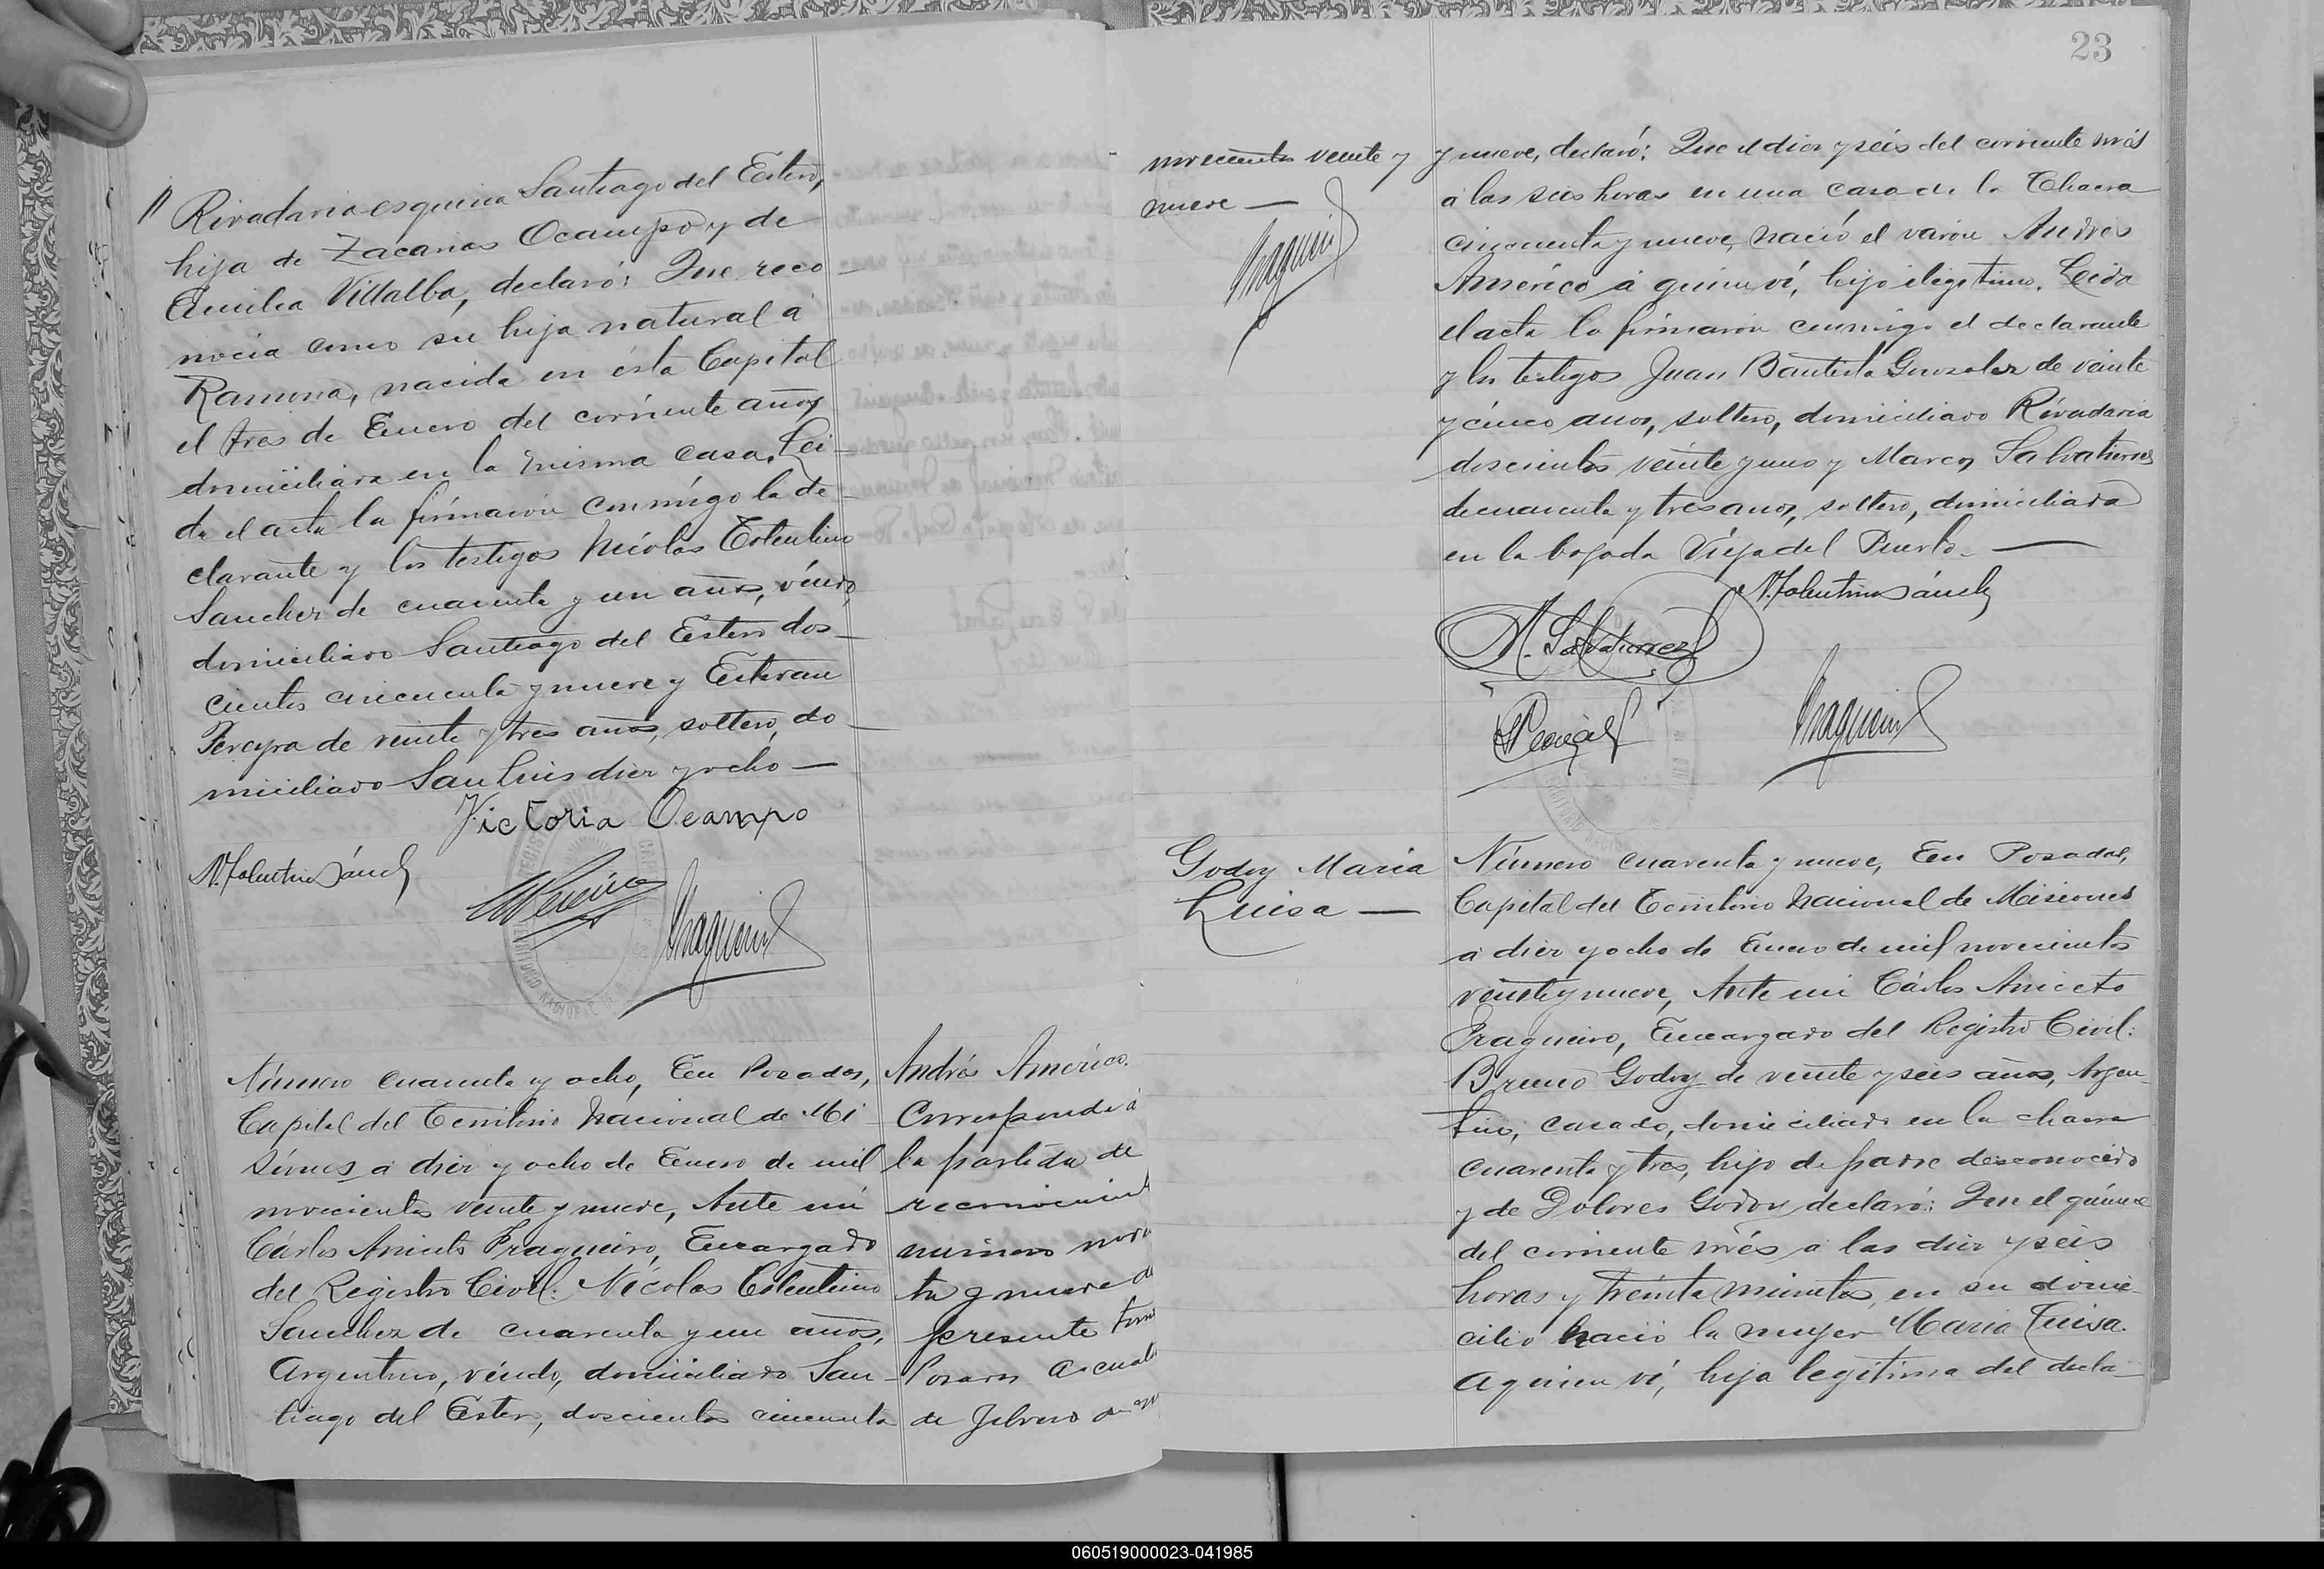 // Rivadavia esquina Santiago del Estero,
hija de Zacarias Ocampo y de
Emilia Villalba, declaró: Que reco-
nocia como su hija natural á
Ramona, nacida en ésta Capital
el tres de Enero del corriente año y
domiciliada en la misma casa. Lei-
da el acta la firmaron conmigo la de-
clarante y los testigos Nicolas Tolentino
Sanchez de cuarenta y un años, viudo,
domiciliado Santiago del Estero dos-
cientos cincuenta y nueve y Estevan
Pereyra de veinte y tres años, soltero, do-
miciliado San Luis diez y ocho —
Victoria Ocampo
N. Tolentino Sánch
Fragueiro
Número cuarenta y ocho, En Posadas,
Capital del Territorio Nacional de Mi-
siones a diez y ocho de Enero de mil
novecientos veinte y nueve, Ante mi
Cárlos Aniceto Fragueiro, Encargado
del Registro Civil: Nicolas Tolentino
Sanchez de cuarenta y un años,
Argentino, viudo, domiciliado San-
tiago del Estero, doscientos cincuenta
Andrés Américo.
Corresponde á
la partida de
reconocimient
número nove
ta y nueve d
presente tomo
Posadas a cuat
de Febrero de
23
novecientos veinte y
nueve —
Fragueiro
y nueve, declaró: Que el diez y seis del corriente més
á las seis horas en una casa de la Chacra
cincuenta y nueve, nació el varón Andrés
Américo á quien ví, hijo ilegitimo. Leida
el acta la firmaron conmigo el declarante
y los testigos Juan Bautista Gonzalez de veinte
y cinco años, soltero, domiciliado Rivadavia
doscientos veinte y uno y Marcos Salvatierrez
de cuarenta y tres años, soltero, domiciliado
en la bajada Vieja del Puerto. —
N. Tolentino Sánch
M. Salvatierrez
Fragueiro
Godoy Maria
Luisa —
Número cuarenta y nueve, En Posadas,
Capital del Territorio Nacional de Misiones
á diez y ocho de Enero de mil novecientos
veinte y nueve, Ante mi Cárlos Aniceto
Fragueiro, Encargado del Registro Civil:
Bruno Godoy de veinte y seis años, Argen-
tino, casado, domiciliado en la chacra
cuarenta y tres, hijo de padre desconocido
y de Dolores Godoy declaró: Que el quince
del corriente més á las diez y seis
horas y treinta minutos, en su domi-
cilio nació la mujer Maria Luisa.
a quien ví, hija legítima del decla-
060519000023-041985